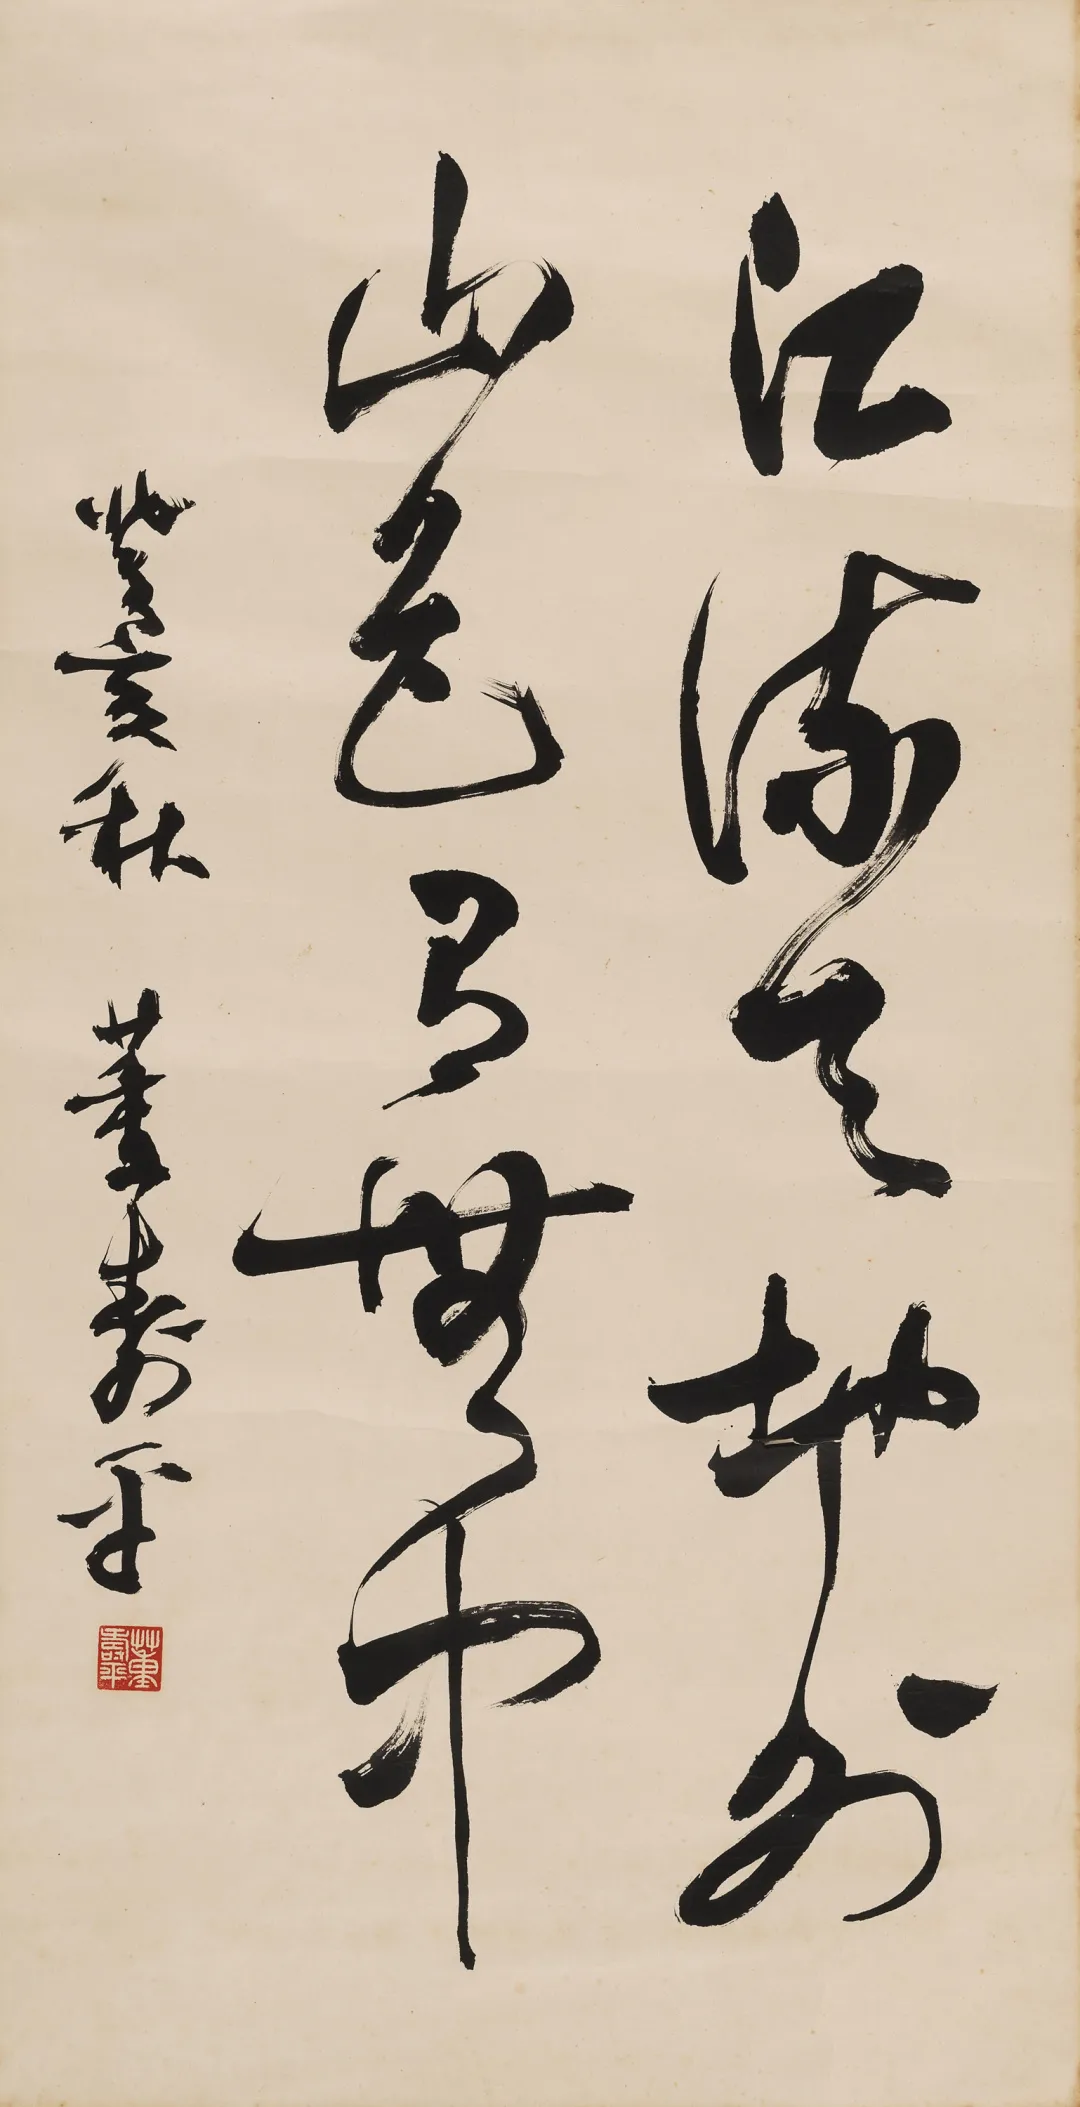 江流天地外
山色有無中
癸亥秋 董壽平
董壽平